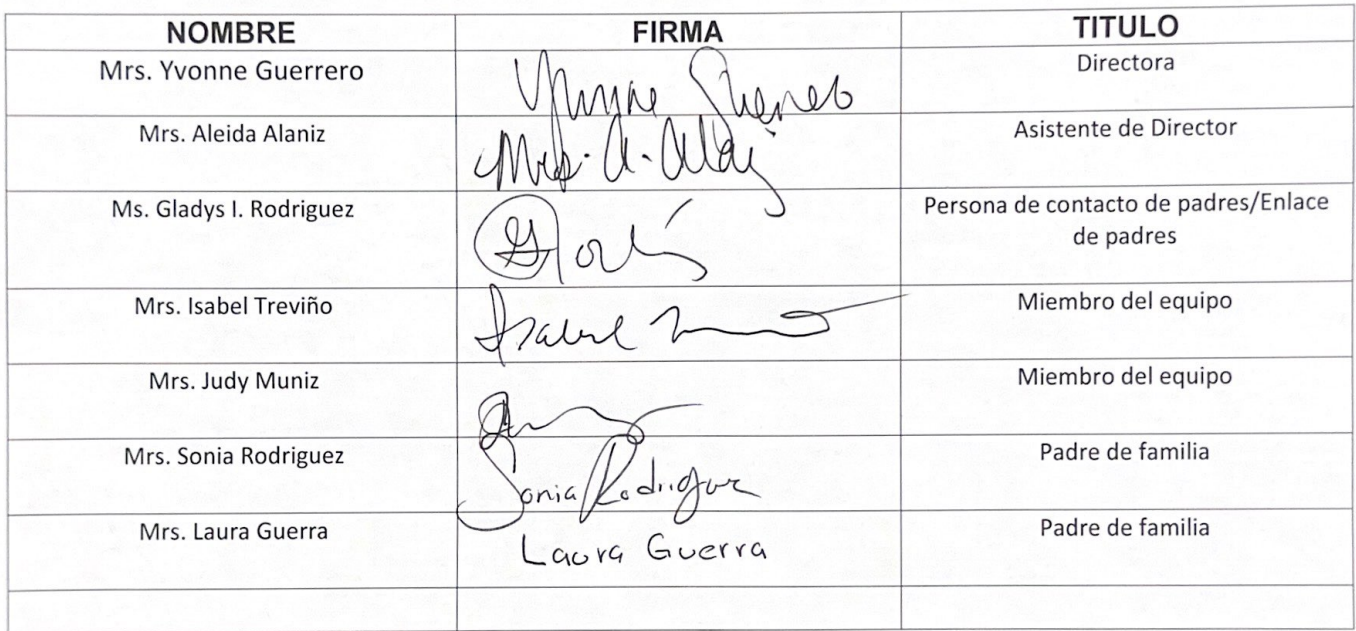 NOMBRE FIRMA TITULO
Mrs. Yvonne Guerrero Yvonne Guerrero Directora
Mrs. Aleida Alaniz Mrs. A. Asistente de Director
Ms. Gladys I. Rodriguez Persona de contacto de padres/Enlace
de padres
Mrs. Isabel Treviño Isabel Miembro del equipo
Mrs. Judy Muniz Miembro del equipo
Mrs. Sonia Rodriguez Sonia Rodriguez Padre de familia
Mrs. Laura Guerra Laura Guerra Padre de familia